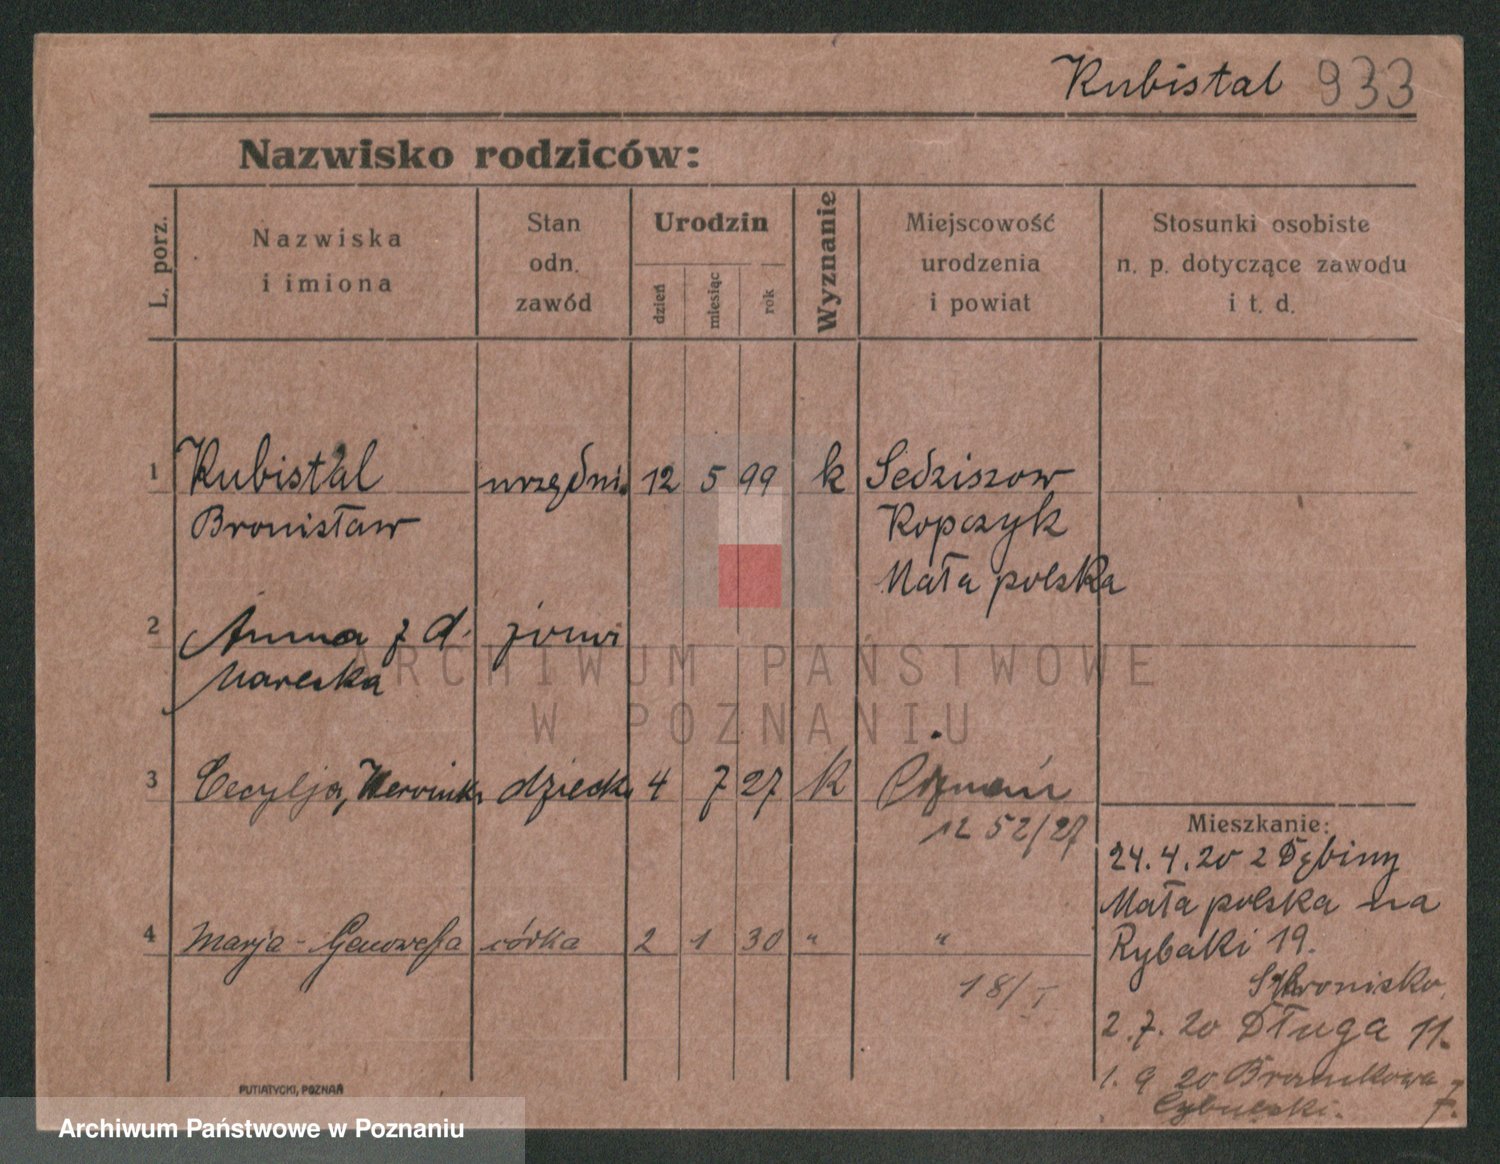 Kubistal 933
Nazwisko rodziców:
L. porz.
Nazwiska
i imiona
Stan
odn.
zawód
Urodzin
dzień
miesiąc
rok
Wyznanie
Miejscowość
urodzenia
i powiat
Stosunki osobiste
n. p. dotyczące zawodu
i t. d.
1 Kubistal urzędni. 12 5 99 k Sedziszow
Bronisław Kopczyk
Mała polska
2 Anna z d. żona
Mareska
3 Cecylja, dziecko 4 7 27 k Poznań
12 52/27
4 Marja - Genowefa córka 2 1 30 " "
18/I
Mieszkanie:
24.4.20 z Dębiny
Mała polska na
Rybaki 19.
2.7.20 Długa 11.
1.9.20 7.
PUTIATYCKI, POZNAŃ
ARCHIWUM PAŃSTWOWE
W POZNANIU
Archiwum Państwowe w Poznaniu